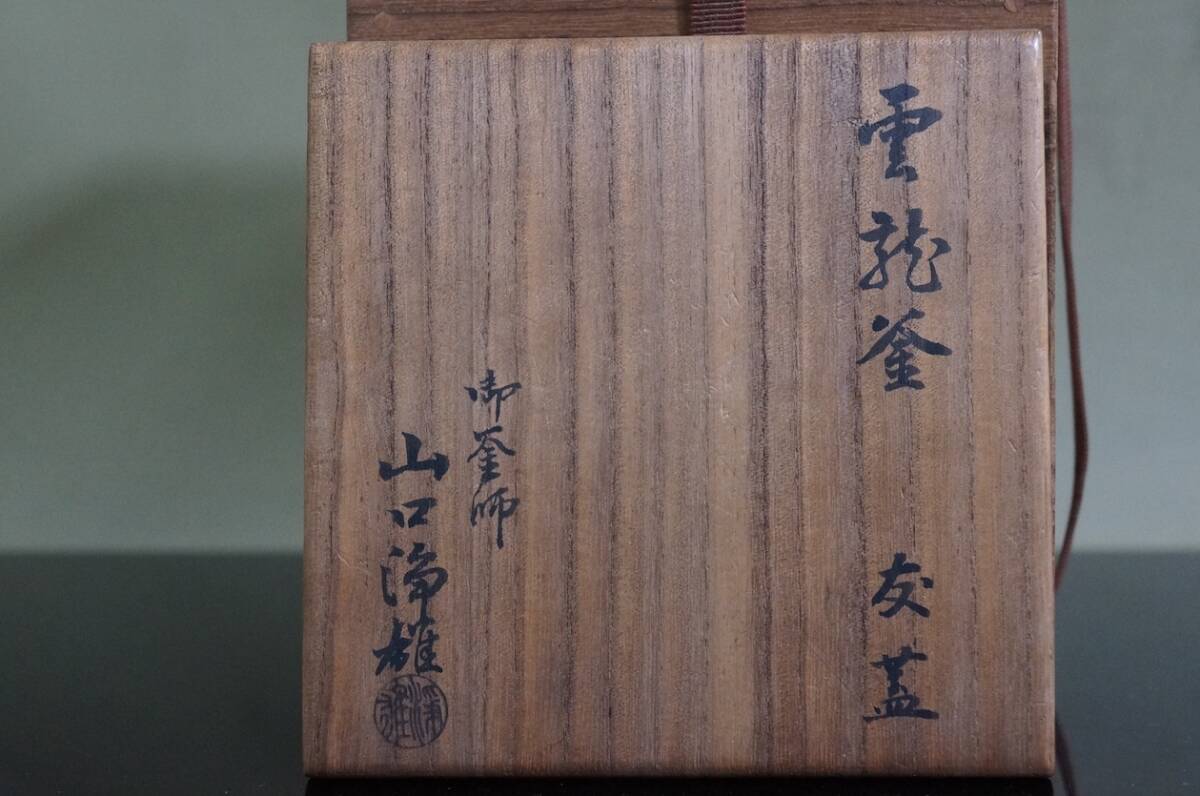 雲龍釜 友蓋
御釜師
山口浄雄
浄雄